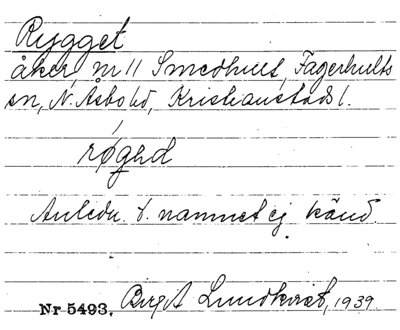 Rygget
åker, nr 11 Smedhult, Fagerhults
sn, N. Åsbo hd, Kristianstads l.
røgəd
Anledn. t. namnet ej känd.
Nr 5493. Birgit Lundkvist, 1939